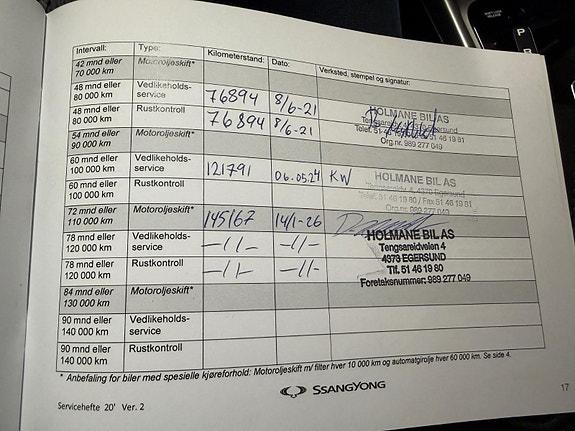 Intervall: Type: Kilometerstand: Dato: Verksted, stempel og signatur:
42 mnd eller Motoroljeskift*
70 000 km
48 mnd eller Vedlikeholds- 76894 8/6-21
80 000 km service
48 mnd eller Rustkontroll 76894 8/6-21
80 000 km
HOLMANE BIL AS
Egersund
Org.nr. 989 277 049
54 mnd eller Motoroljeskift*
90 000 km
60 mnd eller Vedlikeholds- 121791 06.05.24 KW
100 000 km service
60 mnd eller Rustkontroll
100 000 km
HOLMANE BIL AS
Tengsareidv. 4, 4373 Egersund
51 46 19 80 / Fax 51 46 19 81
Org.nr. 989 277 049
72 mnd eller Motoroljeskift* 145167 14/1-26
110 000 km
78 mnd eller Vedlikeholds- —//— —//—
120 000 km service
78 mnd eller Rustkontroll —//— —//—
120 000 km
HOLMANE BIL AS
Tengsareidveien 4
4373 EGERSUND
Tlf. 51 46 19 80
Foretaksnummer: 989 277 049
84 mnd eller Motoroljeskift*
130 000 km
90 mnd eller Vedlikeholds-
140 000 km service
90 mnd eller Rustkontroll
140 000 km
* Anbefaling for biler med spesielle kjøreforhold: Motoroljeskift m/ filter hver 10 000 km og automatgirolje hver 60 000 km. Se side 4.
SSANGYONG
Servicehefte 20' Ver. 2
17
P